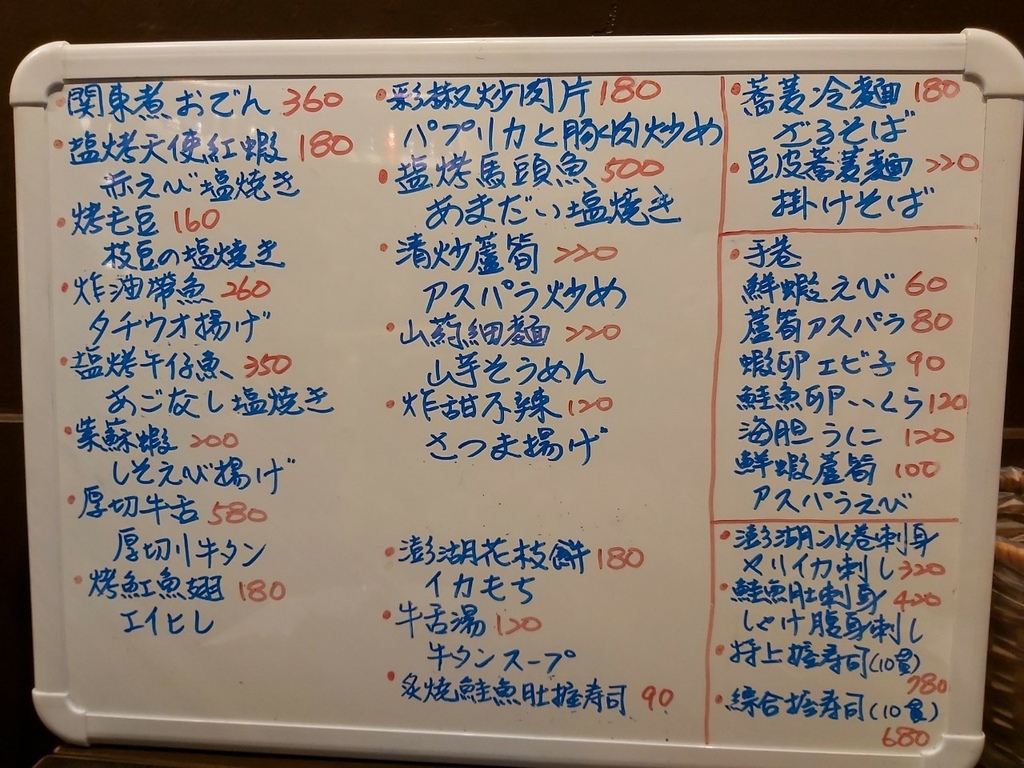 関東煮おでん 360
塩烤天使紅蝦 180
赤えび塩焼き
烤毛豆 160
枝豆の塩焼き
炸油帶魚 260
タチウオ揚げ
塩烤午仔魚 350
あごなし塩焼き
紫蘇蝦 200
しそえび揚げ
厚切牛舌 580
厚切り牛タン
烤魟魚翅 180
エイヒレ
彩椒炒肉片 180
パプリカと豚肉炒め
塩烤馬頭魚 500
あまだい塩焼き
清炒蘆筍 220
アスパラ炒め
山葯細麵 220
山芋そうめん
炸甜不辣 120
さつま揚げ
澎湖花枝餅 180
イカもち
牛舌湯 120
牛タンスープ
炙燒鮭魚肚握寿司 90
蕎麦冷麵 180
ざるそば
豆皮蕎麦麵 220
掛けそば
手巻
鮮蝦えび 60
蘆筍アスパラ 80
蝦卵エビ子 90
鮭魚卵いくら 120
海胆うに 120
鮮蝦蘆筍 100
アスパラえび
澎湖冰卷刺身
ヤリイカ刺し 320
鮭魚肚刺身 420
しゃけ腹身刺し
特上握寿司(10貫)
780
綜合握寿司(10貫)
680